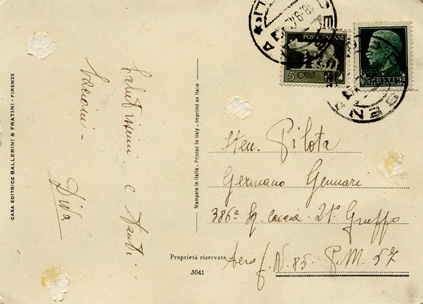 CASA EDITRICE BALLERINI & FRATINI - FIRENZE
Salutissimi e tanti
bacioni -
Diva
Stampata in Italia - Printed in Italy - Imprimé en Italie
Proprietà riservata
3041
POSTE ITALIANE
5 CENT
CESENA
Ten. Pilota
Germano Gennari
386ª Sq. Caccia - 21º Gruppo
Aero f. N. 85 - P.M. 57